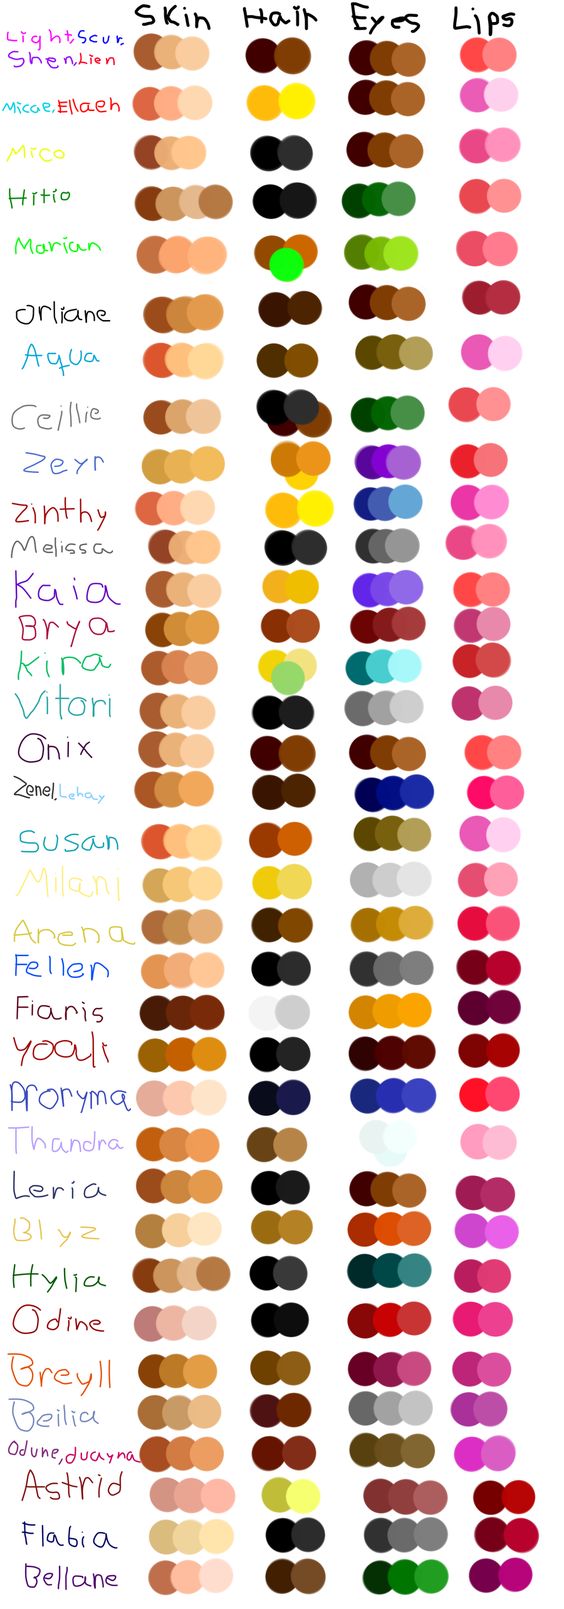 Skin Hair Eyes Lips
Light, Scur,
Shen, Lien
Micae, Ellaeh
Mico
Hitio
Marian
Orliane
Aqua
Ceillie
Zeyr
Zinthy
Melissa
Kaia
Brya
Kira
Vitori
Onix
Zenel, Lehay
Susan
Milani
Arena
Fellen
Fiaris
Yoali
Proryma
Thandra
Leria
Blyz
Hylia
Odine
Breyll
Beilia
Odune, duayna
Astrid
Flabia
Bellane